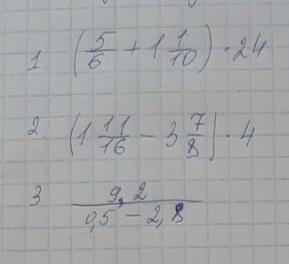 1 (5/6 + 1 1/10) · 24
2. (1 11/16 - 3 7/8) · 4
3 9,2 / (0,5 - 2,8)